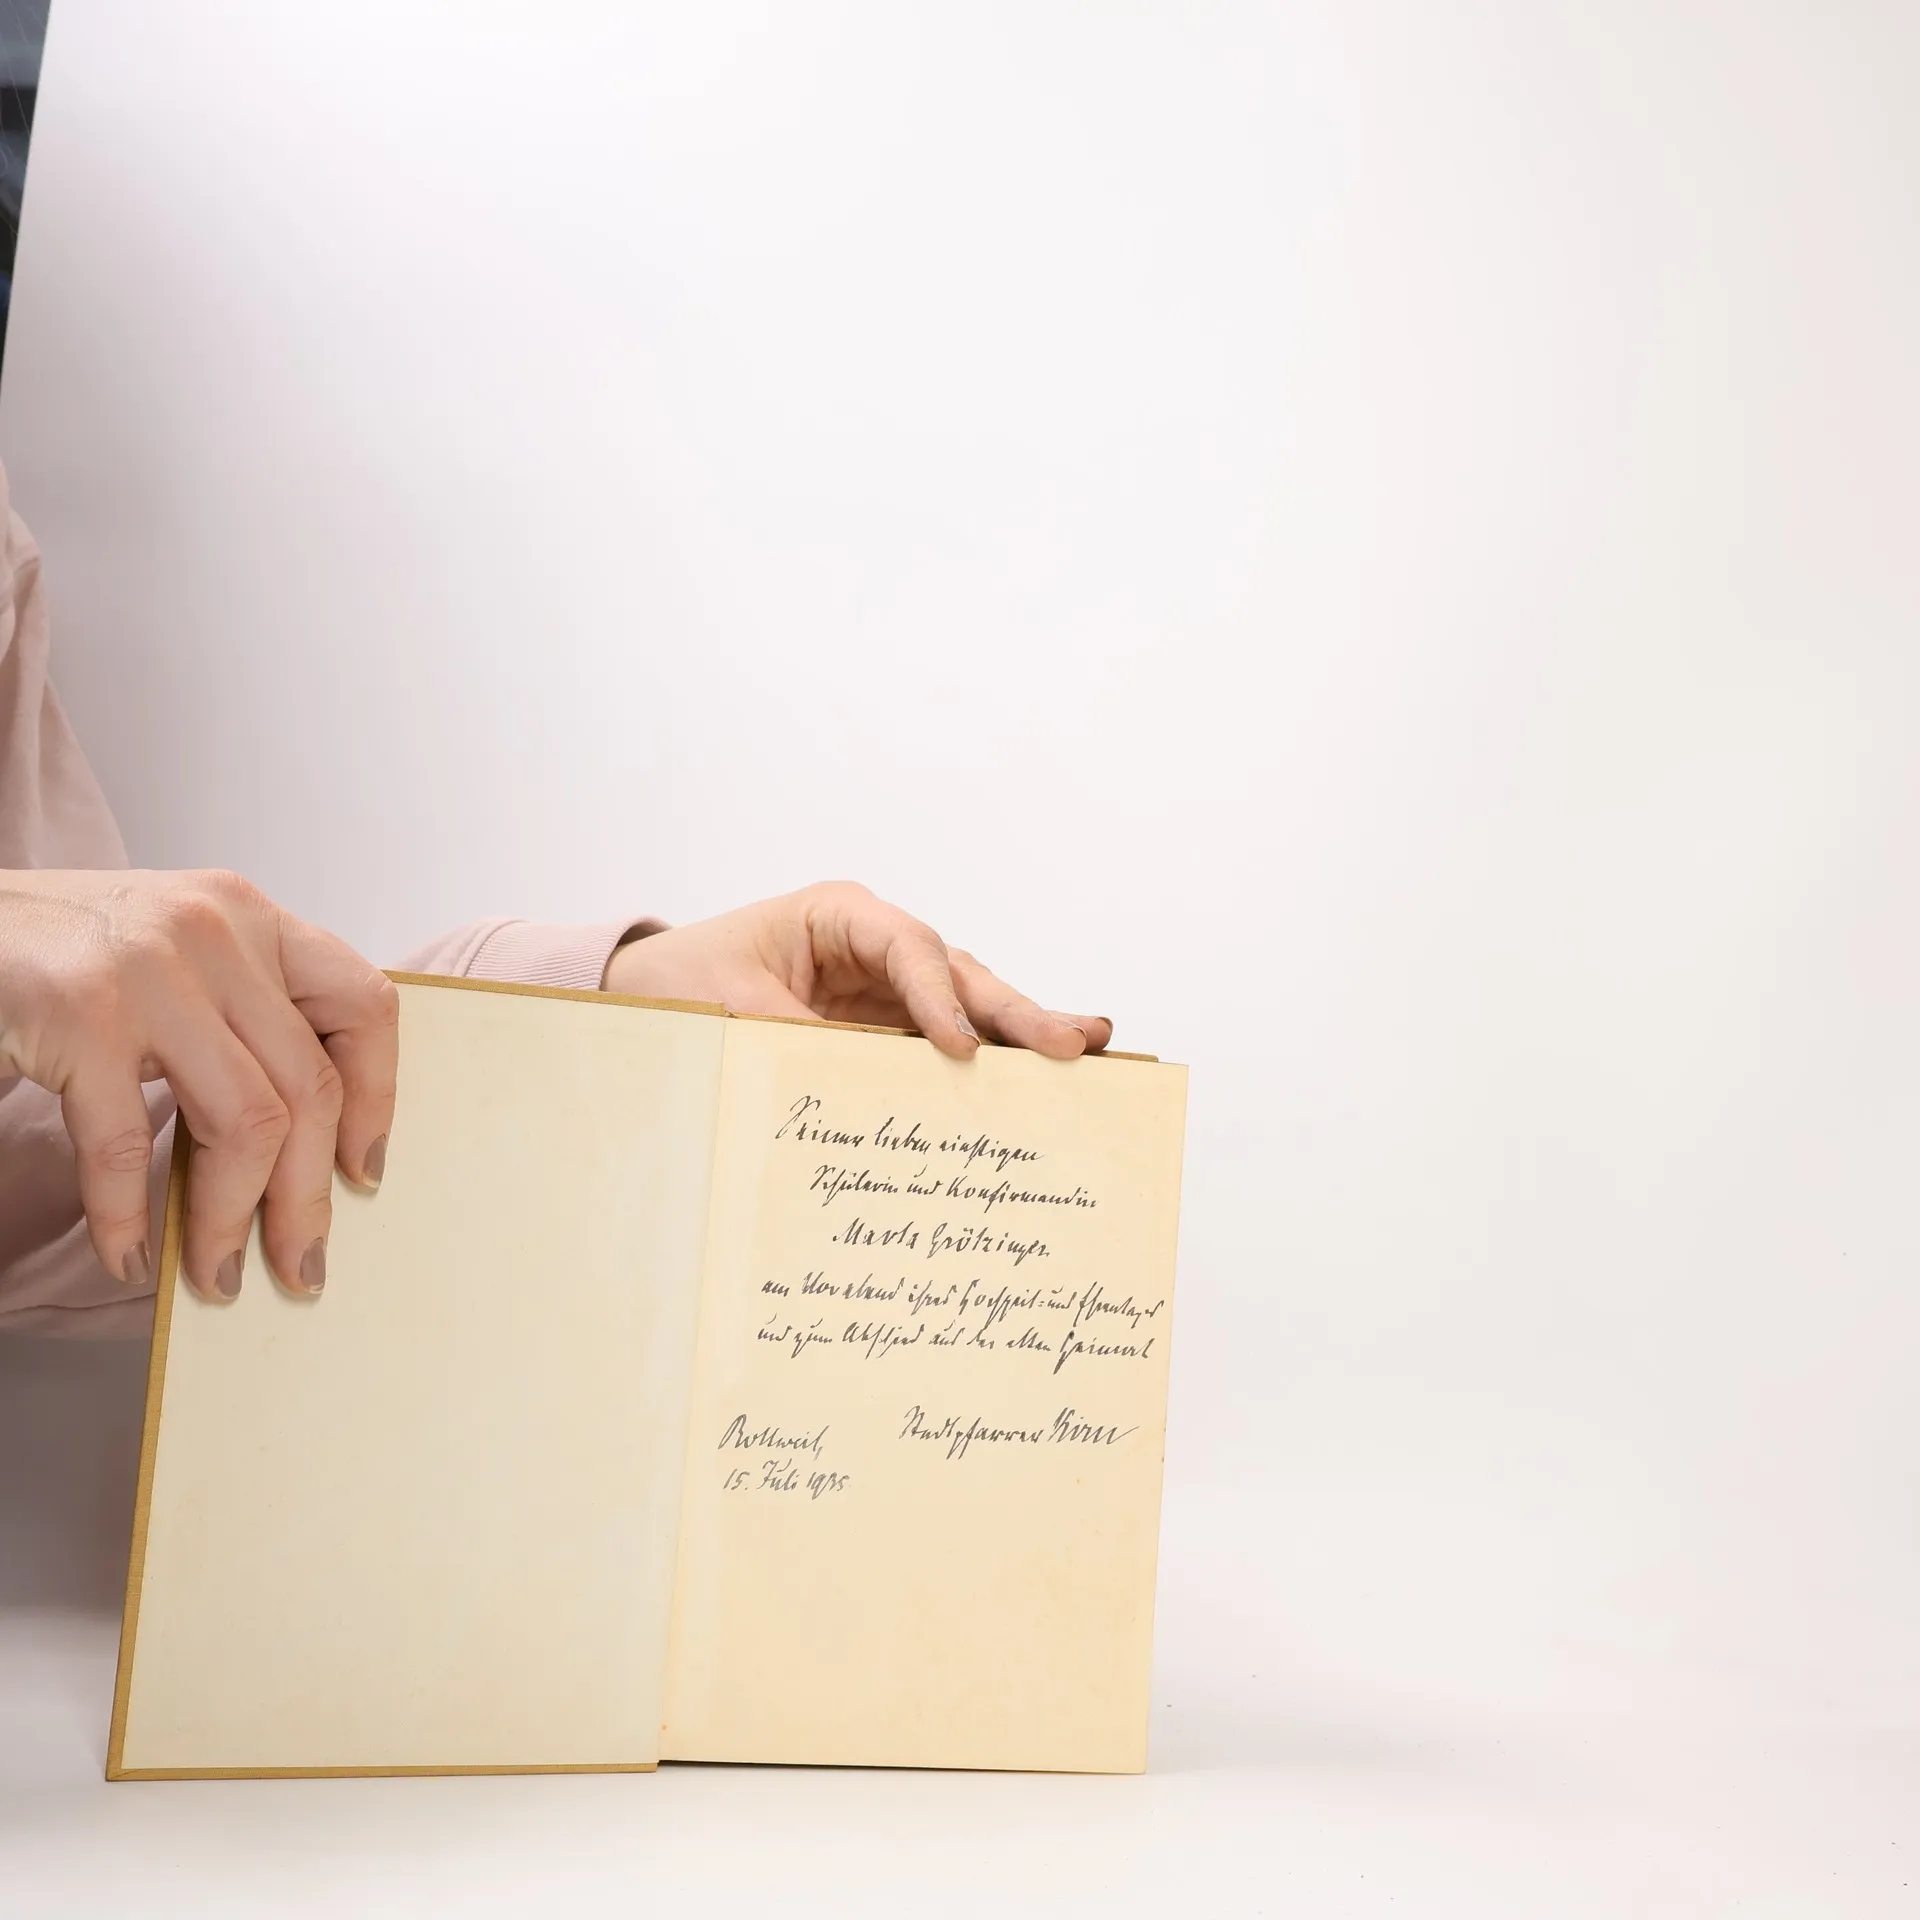 Seiner lieben einstigen
Schülerin und Konfirmandin
Marta Grötzinger
am Vorabend ihres Hochzeit- und Ehrentages
und zum Abschied aus der alten Heimat
Stadtpfarrer
Rottweil,
15. Juli 1935.